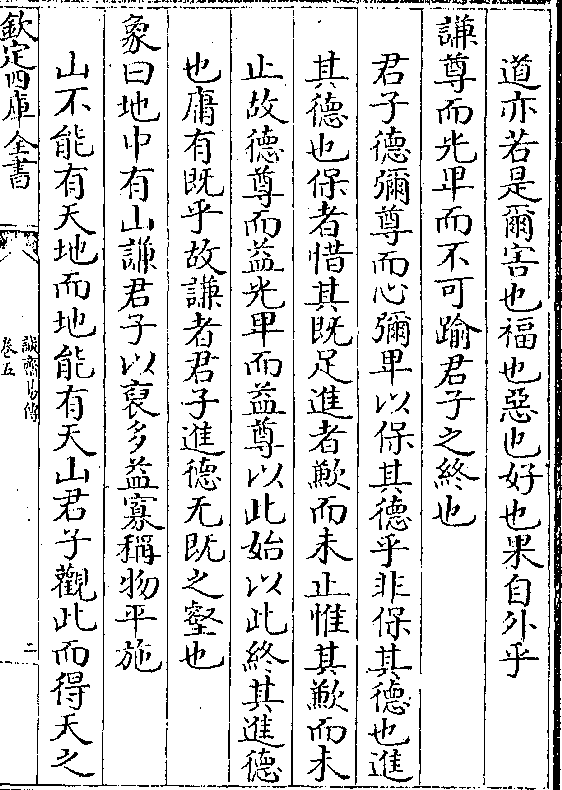 道亦若是爾害也福也惡也好也果自外乎
謙尊而光卑而不可踰君子之終也
君子德彌尊而心彌卑以保其德乎非保其德也進
其德也保者惜其既足進者歉而未止惟其歉而未
止故德尊而益光卑而益尊以此始以此終其進德
也庸有既乎故謙者君子進德无既之壑也
象曰地中有山謙君子以裒多益寡稱物平施
山不能有天地而地能有天山君子觀此而得天之
欽定四庫全書
誠齋易傳
卷五
二